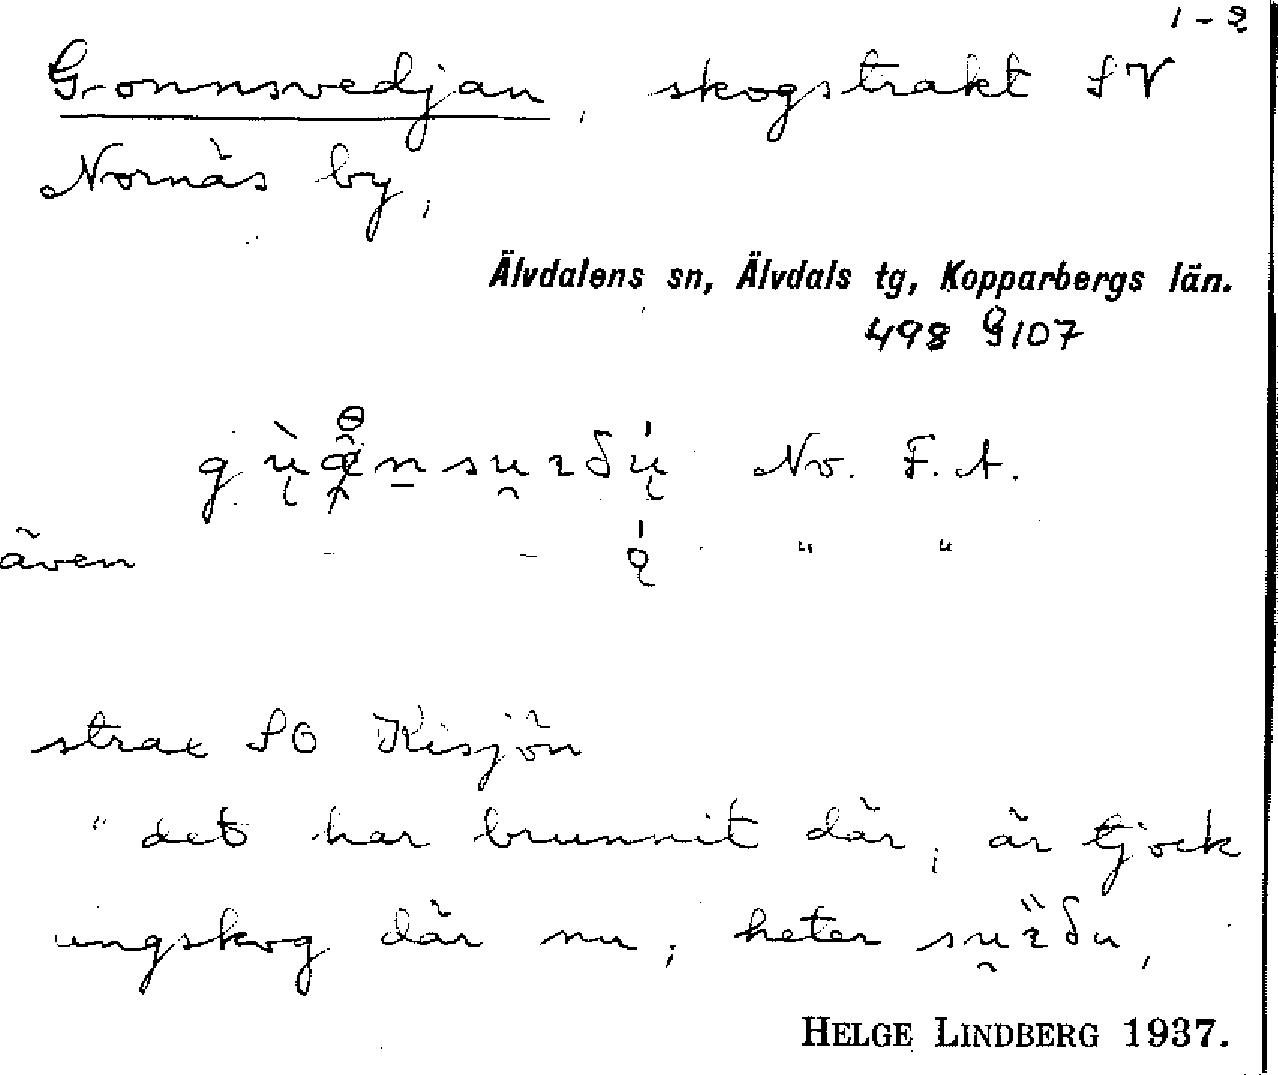 1-2
Gronnsvedjan, skogstrakt SV
Nornäs by,
Älvdalens sn, Älvdals tg, Kopparbergs län.
498 9107
No. F. A.
även - - " "
strax SO Kisjön
"det har brunnit där, är tjock
ungskog där nu, heter
HELGE LINDBERG 1937.